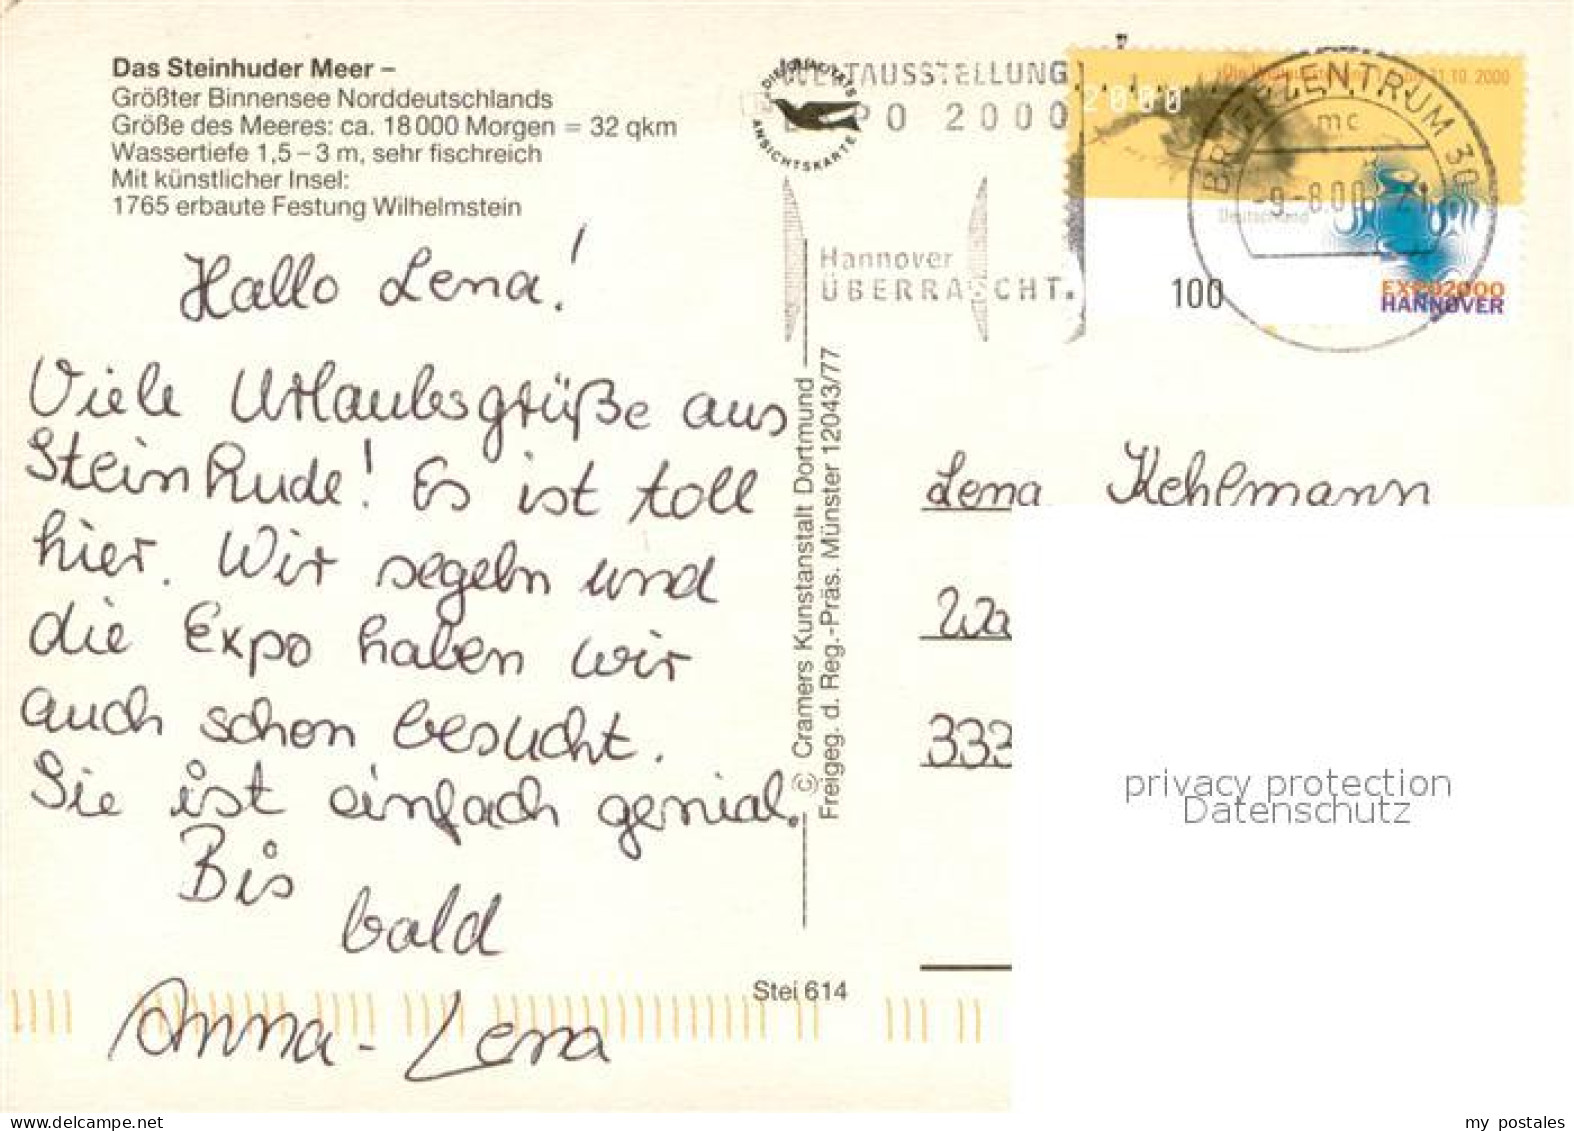 Das Steinhuder Meer –
Größter Binnensee Norddeutschlands
Größe des Meeres: ca. 18000 Morgen = 32 qkm
Wassertiefe 1,5–3 m, sehr fischreich
Mit künstlicher Insel:
1765 erbaute Festung Wilhelmstein
Hallo Lena!
Viele Urlaubsgrüße aus
Steinhude! Es ist toll
hier. Wir segeln und
die Expo haben wir
auch schon besucht.
Sie ist einfach genial.
Bis
bald
Anna-Lena
© Cramers Kunstanstalt Dortmund
Freigeg. d. Reg.-Präs. Münster 12043/77
Stei 614
DIE QUALITÄTS
ANSICHTSKARTE
WELTAUSSTELLUNG
EXPO 2000
Hannover
ÜBERRASCHT.
31.10. 2000
2000
BRIEFZENTRUM 30
mc
-9.-8.00 - 21
Deutschland
100
EXPO2000
HANNOVER
Lena Kehlmann
Wa
333
privacy protection
Datenschutz
my postales
delcampe.net